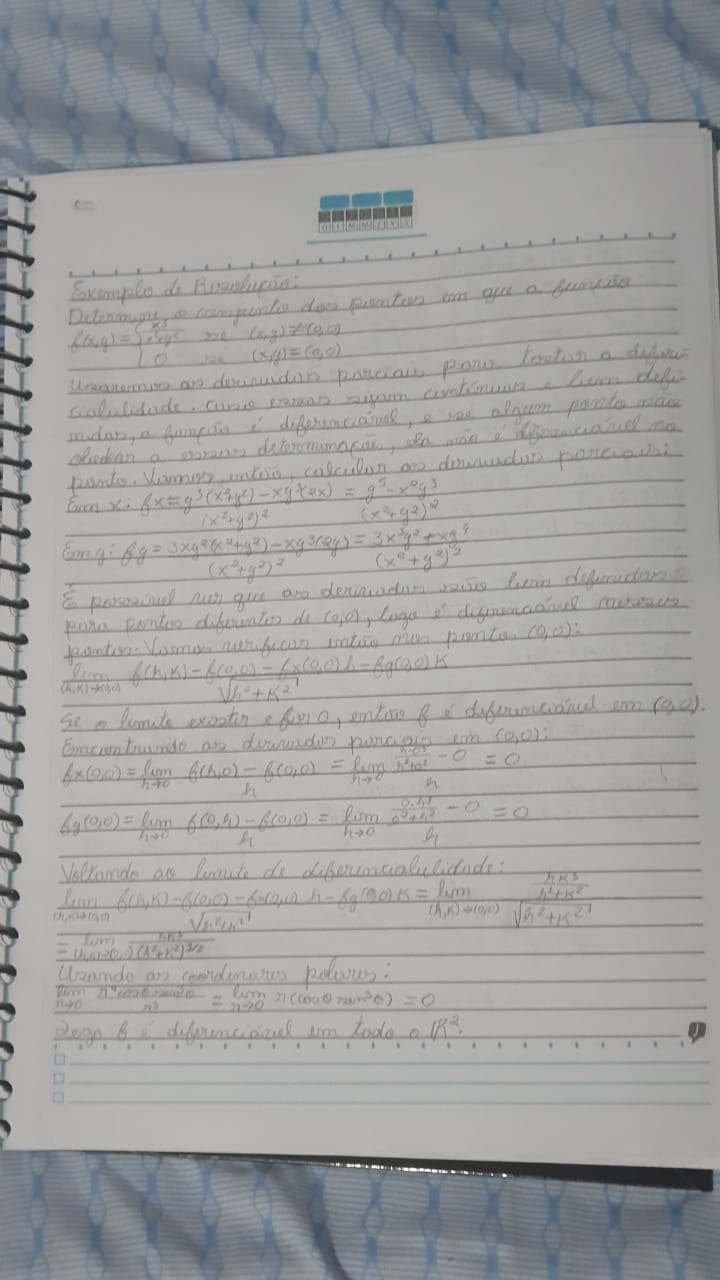 Exemplo de Resolução:
Determine o conjunto dos pontos em que a função
f(x,y) = { x³/x²+y² se (x,y) ≠ (0,0)
0 se (x,y) = (0,0)
Usaremos as derivadas parciais para testar a diferen-
ciabilidade. Caso essas sejam contínuas e bem defi-
nidas, a função é diferenciável, e se algum ponto não
obedecer a essas determinação, ela não é diferenciável no
ponto. Vamos, então, calcular as derivadas parciais:
Em x: fx = y³(x²+y²) - xy³(2x) / (x²+y²)² = y⁵ - x²y³ / (x²+y²)²
Em y: fy = 3xy²(x²+y²) - xy³(2y) / (x²+y²)² = 3x³y² + xy⁴ / (x²+y²)²
É possível ver que as derivadas são bem definidas
para pontos diferentes de (0,0), logo é diferenciável nesses
pontos. Vamos verificar então nos pontos (0,0):
lim (h,k)→(0,0) f(h,k) - f(0,0) - fx(0,0)h - fy(0,0)k / √h²+k²
Se o limite existir e for 0, então f é diferenciável em (0,0).
Encontrando as derivadas parciais em (0,0):
fx(0,0) = lim h→0 f(h,0) - f(0,0) / h = lim h→0 h.0³/h²+0² - 0 / h = 0
fy(0,0) = lim h→0 f(0,h) - f(0,0) / h = lim h→0 0.h³/0²+h² - 0 / h = 0
Voltando ao limite de diferenciabilidade:
lim (h,k)→(0,0) f(h,k) - f(0,0) - fx(0,0)h - fy(0,0)k / √h²+k² = lim (h,k)→(0,0) hk³/h²+k² / √h²+k²
= lim (h,k)→(0,0) hk³ / (h²+k²)^3/2
Usando as coordenares polares:
lim r→0 r⁴cosθ sen³θ / r³ = lim r→0 r(cosθ sen³θ) = 0
Logo f é diferenciável em todo o R².